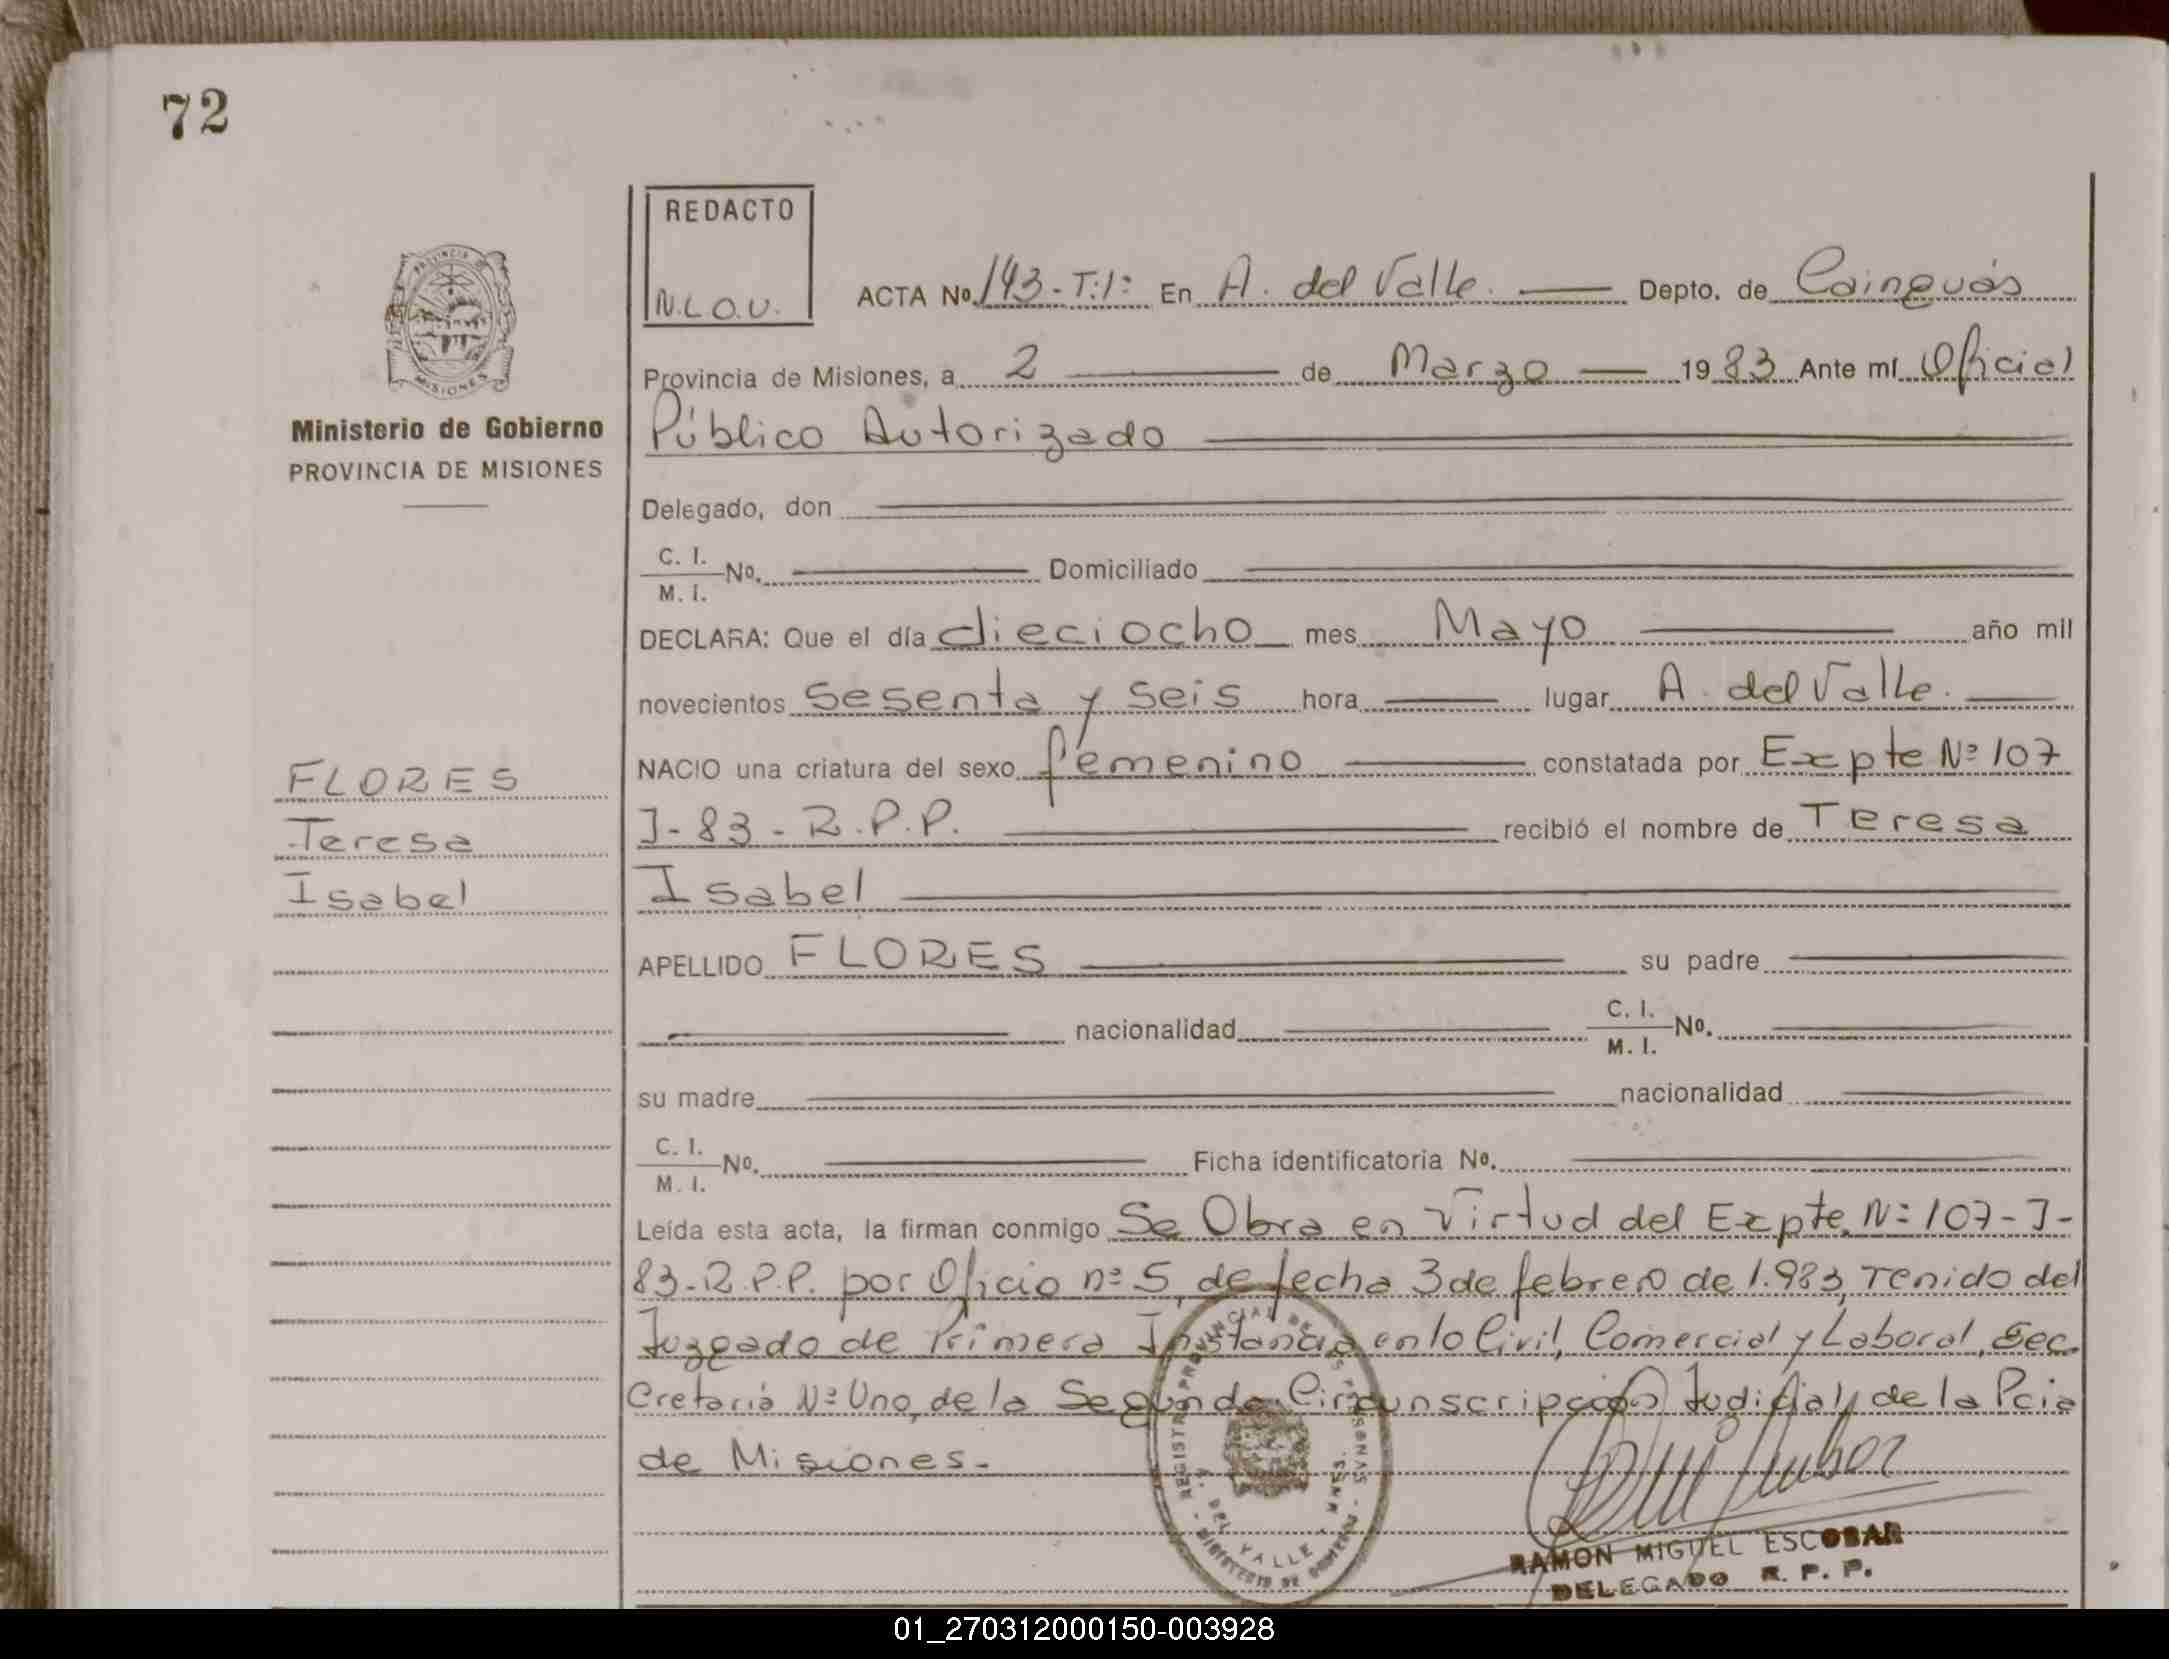 72
REDACTO
N.L.O.U.
ACTA No. 143-T:1º En A. del Valle. Depto. de Cainguás
Provincia de Misiones, a 2 de Marzo 1983 Ante mí Oficial
Público Autorizado
PROVINCIA DE MISIONES
Ministerio de Gobierno
PROVINCIA DE MISIONES
Delegado, don
C. I.
M. I. No. Domiciliado
DECLARA: Que el día dieciocho mes Mayo año mil
novecientos sesenta y seis hora lugar A. del Valle.
NACIO una criatura del sexo femenino constatada por Expte Nº 107
J-83-R.P.P. recibió el nombre de Teresa
Isabel
FLORES
Teresa
Isabel
APELLIDO FLORES su padre
nacionalidad C. I.
M. I. No.
su madre nacionalidad
C. I.
M. I. No. Ficha identificatoria No.
Leída esta acta, la firman conmigo Se Obra en Virtud del Expte. Nº 107-J-
83-R.P.P. por Oficio nº 5, de fecha 3 de febrero de 1.983, Tenido del
Juzgado de Primera Instancia en lo Civil, Comercial y Laboral, Sec.
Cretaria Nº Uno, de la Segunda Circunscripción Judicial, de la Pcia
de Misiones.-
REGISTRO PROVINCIAL DE LAS PERSONAS
A. DEL VALLE - MNES.
MINISTERIO DE GOBIERNO
RAMON MIGUEL ESCOBAR
DELEGADO R. P. P.
01_270312000150-003928